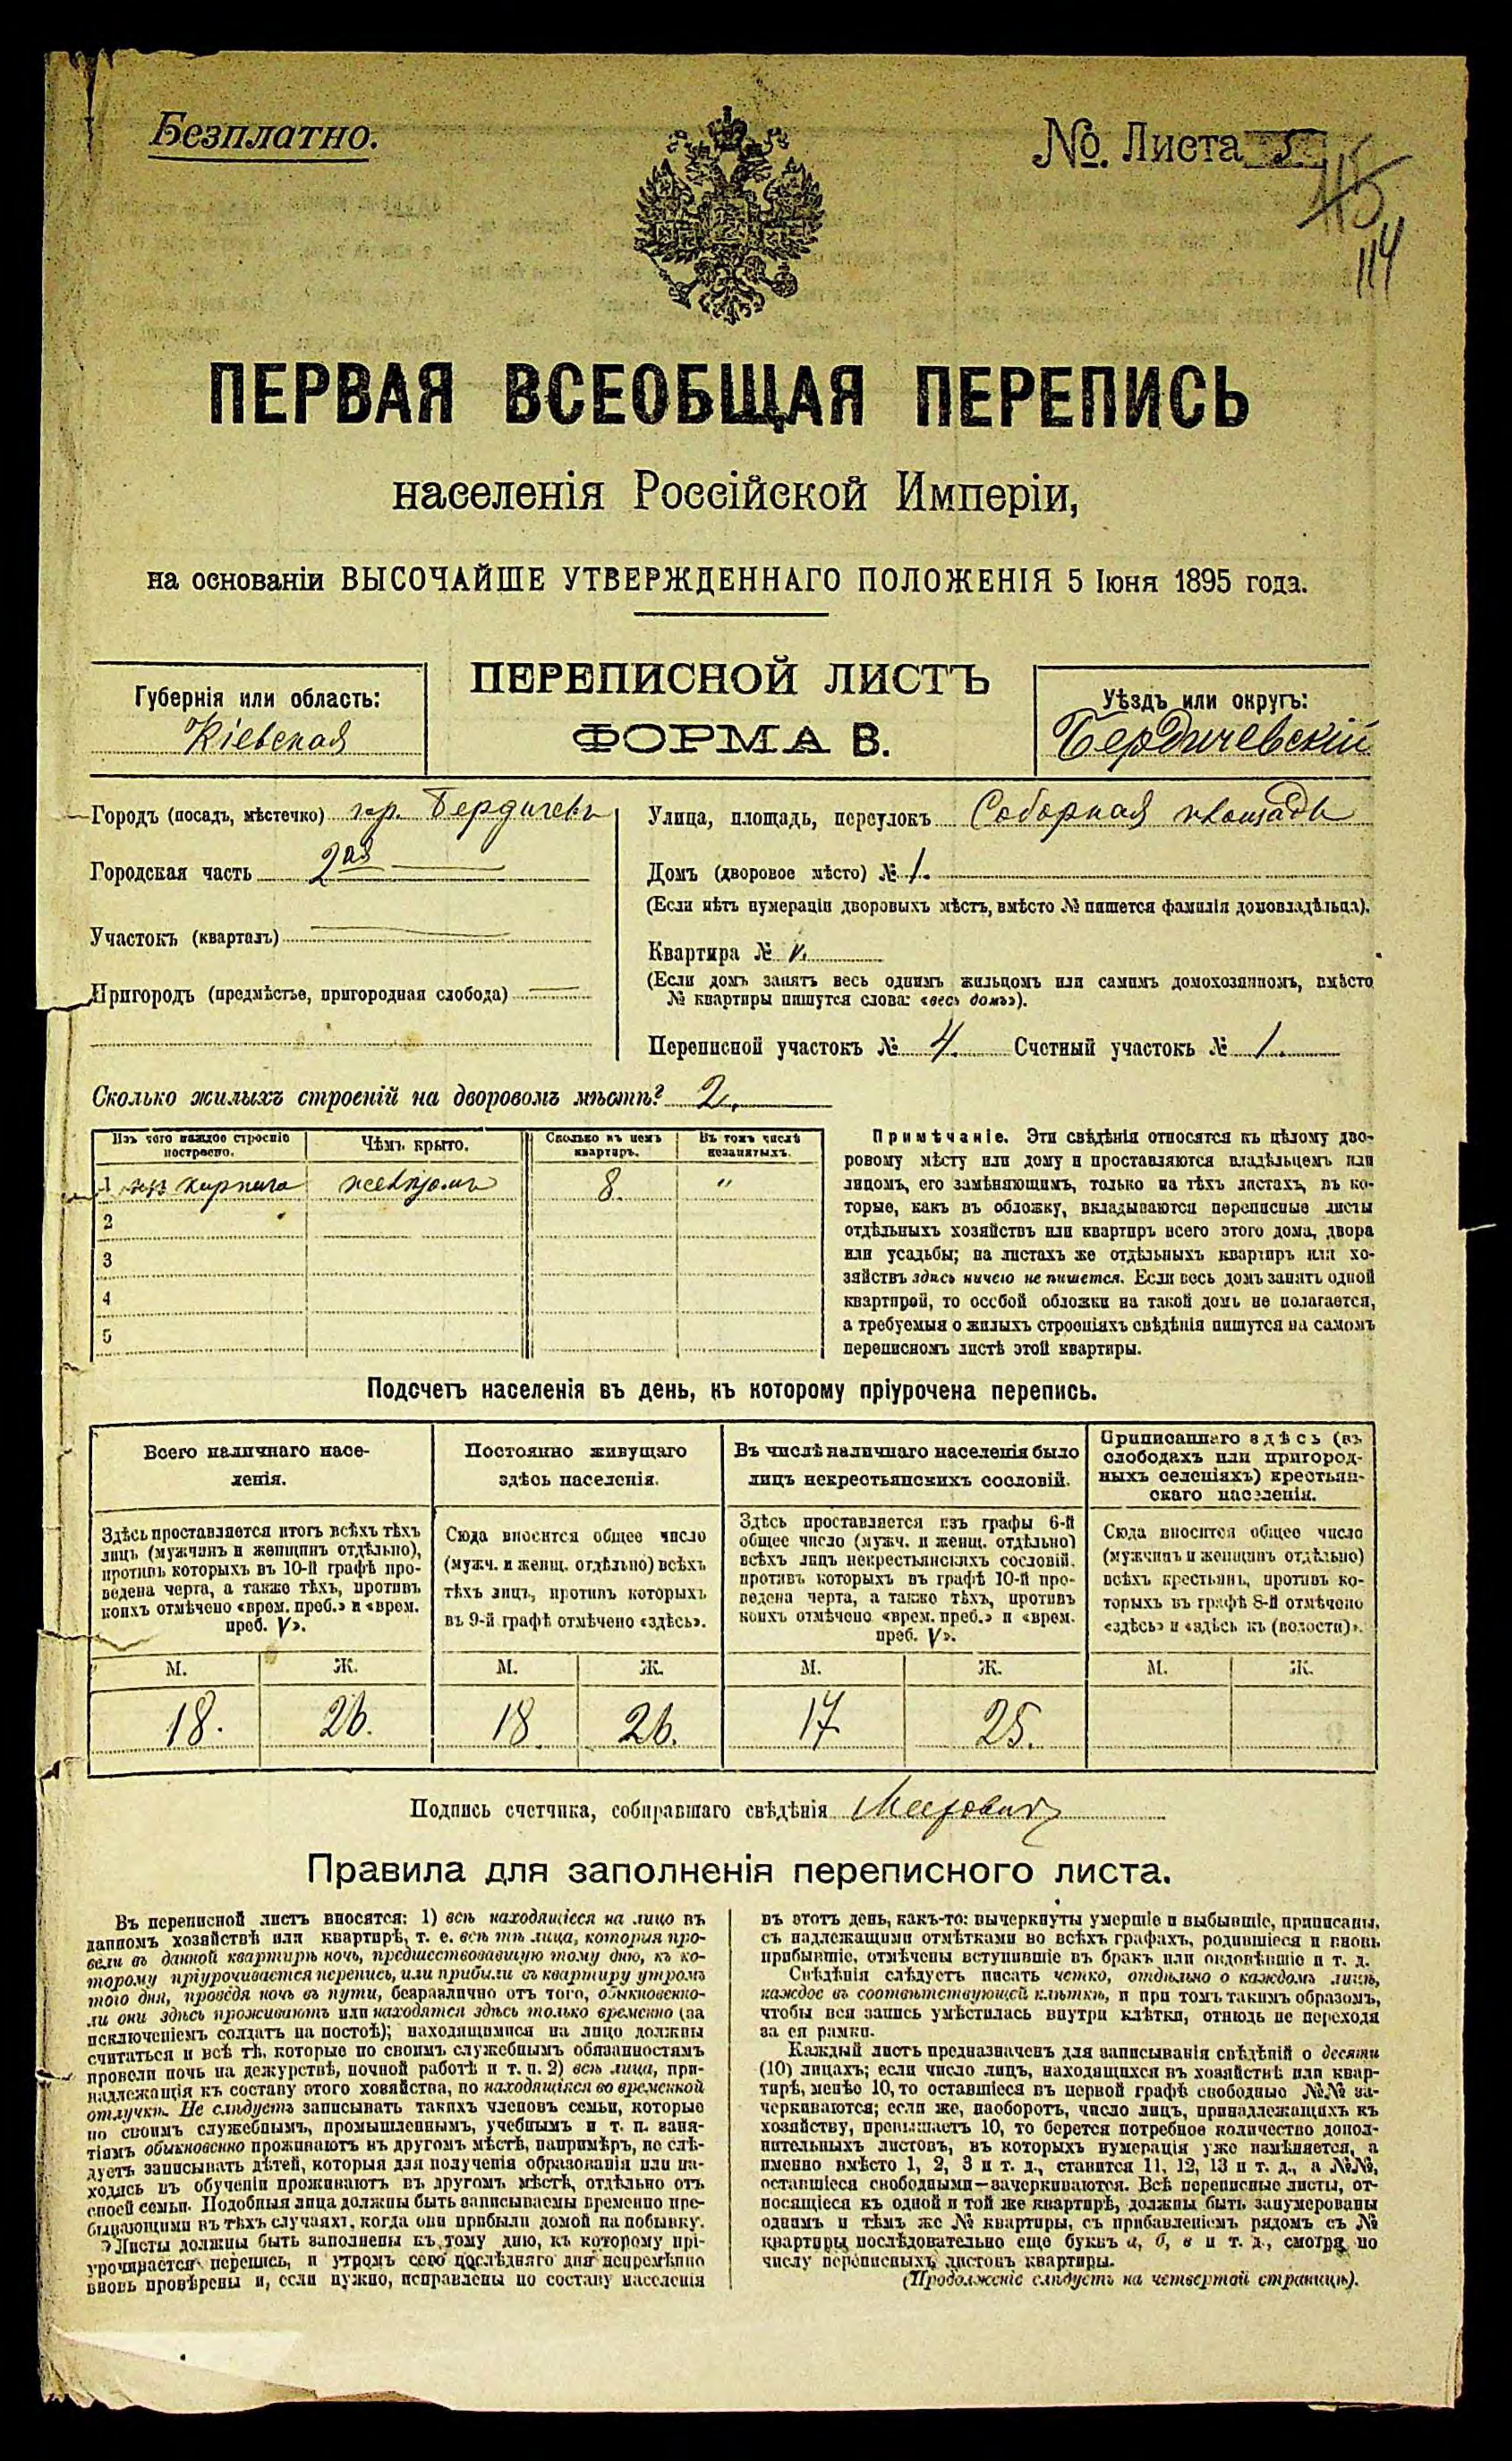 Безплатно.
№. Листа 5
115
114
ПЕРВАЯ ВСЕОБЩАЯ ПЕРЕПИСЬ
населенія Россійской Имперіи,
на основаніи ВЫСОЧАЙШЕ УТВЕРЖДЕННАГО ПОЛОЖЕНІЯ 5 Іюня 1895 года.
Губернія или область:
Кіевская
ПЕРЕПИСНОЙ ЛИСТЪ
ФОРМА В.
Уѣздъ или округъ:
Бердичевскій
Городъ (посадъ, мѣстечко) гор. Бердичевъ
Городская часть 2ая
Участокъ (кварталъ)
Пригородъ (предмѣстье, пригородная слобода)
Улица, площадь, переулокъ Соборная площадь
Домъ (дворовое мѣсто) № 1.
(Если нѣтъ нумераціи дворовыхъ мѣстъ, вмѣсто № пишется фамилія домовладѣльца).
Квартира №
(Если домъ занятъ весь однимъ жильцомъ или самимъ домохозяиномъ, вмѣсто
№ квартиры пишутся слова: «весь домъ»).
Переписной участокъ № 4. Счетный участокъ № 1.
Сколько жилыхъ строеній на дворовомъ мѣстѣ? 2.
Изъ чего каждое строеніе построено.
Чѣмъ крыто.
Сколько въ немъ квартиръ.
Въ томъ числѣ незанятыхъ.
1 изъ кирпича желѣзомъ 8. "
2
3
4
5
Примѣчаніе. Эти свѣдѣнія относятся къ цѣлому дво-
ровому мѣсту или дому и проставляются владѣльцемъ или
лицомъ, его замѣняющимъ, только на тѣхъ листахъ, въ ко-
торые, какъ въ обложку, вкладываются переписные листы
отдѣльныхъ хозяйствъ или квартиръ всего этого дома, двора
или усадьбы; на листахъ же отдѣльныхъ квартиръ или хо-
зяйствъ здѣсь ничего не пишется. Если весь домъ занятъ одной
квартирой, то особой обложки на такой домъ не полагается,
а требуемыя о жилыхъ строеніяхъ свѣдѣнія пишутся на самомъ
переписномъ листѣ этой квартиры.
Подсчетъ населенія въ день, къ которому пріурочена перепись.
Всего наличнаго насе-
ленія.
Здѣсь проставляется итогъ всѣхъ тѣхъ
лицъ (мужчинъ и женщинъ отдѣльно),
противъ которыхъ въ 10-й графѣ про-
ведена черта, а также тѣхъ, противъ
коихъ отмѣчено «врем. преб.» и «врем.
преб. V».
М. Ж.
18. 26.
Постоянно живущаго
здѣсь населенія.
Сюда вносится общее число
(мужч. и женщ. отдѣльно) всѣхъ
тѣхъ лицъ, противъ которыхъ
въ 9-й графѣ отмѣчено «здѣсь».
М. Ж.
18. 26.
Въ числѣ наличнаго населенія было
лицъ некрестьянскихъ сословій.
Здѣсь проставляется изъ графы 6-й
общее число (мужч. и женщ. отдѣльно)
всѣхъ лицъ некрестьянскихъ сословій,
противъ которыхъ въ графѣ 10-й про-
ведена черта, а также тѣхъ, противъ
коихъ отмѣчено «врем. преб.» и «врем.
преб. V».
М. Ж.
17 25.
Приписаннаго здѣсь (въ
слободахъ или пригород-
ныхъ селеніяхъ) крестьян-
скаго населенія.
Сюда вносится общее число
(мужчинъ и женщинъ отдѣльно)
всѣхъ крестьянъ, противъ ко-
торыхъ въ графѣ 8-й отмѣчено
«здѣсь» и «здѣсь къ (волости)».
М. Ж.
Подпись счетчика, собиравшаго свѣдѣнія
Правила для заполненія переписного листа.
Въ переписной листъ вносятся: 1) всѣ находящіеся на лицо въ
данномъ хозяйствѣ или квартирѣ, т. е. всѣ тѣ лица, которыя про-
вели въ данной квартирѣ ночь, предшествовавшую тому дню, къ ко-
торому пріурочивается перепись, или прибыли въ квартиру утромъ
того дня, проведя ночь въ пути, безразлично отъ того, обыкновенно-
ли они здѣсь проживаютъ или находятся здѣсь только временно (за
исключеніемъ солдатъ на постоѣ); находящимися на лицо должны
считаться и всѣ тѣ, которые по своимъ служебнымъ обязанностямъ
провели ночь на дежурствѣ, ночной работѣ и т. п. 2) всѣ лица, при-
надлежащія къ составу этого хозяйства, но находящіяся во временной
отлучкѣ. Не слѣдуетъ записывать такихъ членовъ семьи, которые
по своимъ служебнымъ, промышленнымъ, учебнымъ и т. п. заня-
тіямъ обыкновенно проживаютъ въ другомъ мѣстѣ, напримѣръ, не слѣ-
дуетъ записывать дѣтей, которыя для полученія образованія или на-
ходясь въ обученіи проживаютъ въ другомъ мѣстѣ, отдѣльно отъ
своей семьи. Подобныя лица должны быть записываемы временно пре-
бывающими въ тѣхъ случаяхъ, когда они прибыли домой на побывку.
Листы должны быть заполнены къ тому дню, къ которому прі-
урочивается перепись, и утромъ сего послѣдняго дня непремѣнно
вновь провѣрены и, если нужно, исправлены по составу населенія
въ этотъ день, какъ-то: вычеркнуты умершіе и выбывшіе, приписаны,
съ надлежащими отмѣтками во всѣхъ графахъ, родившіеся и вновь
прибывшіе, отмѣчены вступившіе въ бракъ или овдовѣвшіе и т. д.
Свѣдѣнія слѣдуетъ писать четко, отдѣльно о каждомъ лицѣ,
каждое въ соотвѣтствующей клѣткѣ, и при томъ такимъ образомъ,
чтобы вся запись умѣстилась внутри клѣтки, отнюдь не переходя
за ея рамки.
Каждый листъ предназначенъ для записыванія свѣдѣній о десяти
(10) лицахъ; если число лицъ, находящихся въ хозяйствѣ или квар-
тирѣ, менѣе 10, то оставшіеся въ первой графѣ свободные №№ за-
черкиваются; если же, наоборотъ, число лицъ, принадлежащихъ къ
хозяйству, превышаетъ 10, то берется потребное количество допол-
нительныхъ листовъ, въ которыхъ нумерація уже измѣняется, а
именно вмѣсто 1, 2, 3 и т. д., ставится 11, 12, 13 и т. д., а №№,
оставшіеся свободными—зачеркиваются. Всѣ переписные листы, от-
носящіеся къ одной и той же квартирѣ, должны быть занумерованы
однимъ и тѣмъ же № квартиры, съ прибавленіемъ рядомъ съ №
квартиры послѣдовательно еще буквъ а, б, в и т. д., смотря по
числу переписныхъ листовъ квартиры.
(Продолженіе слѣдуетъ на четвертой страницѣ).